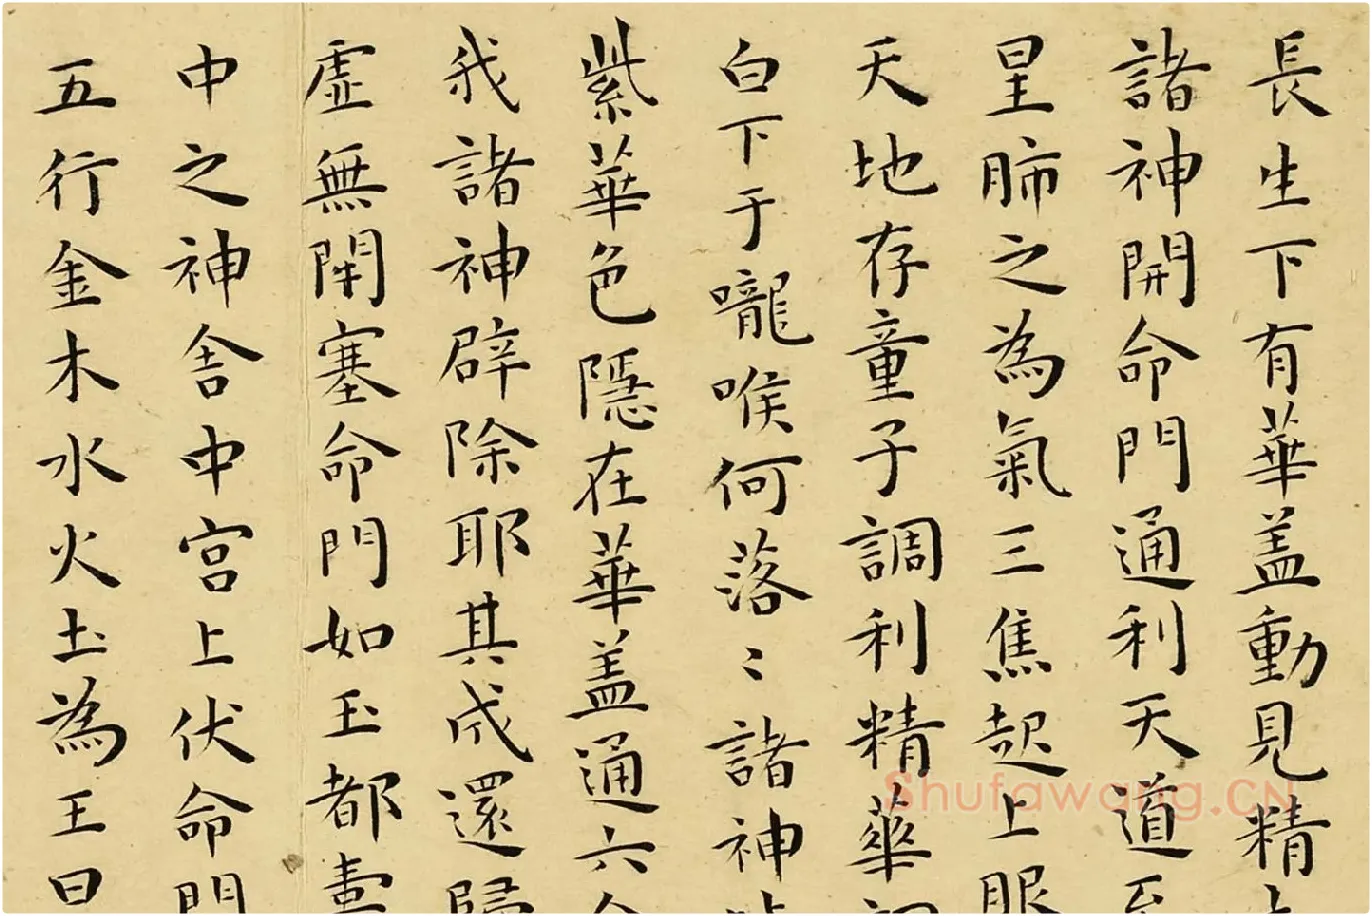 長生下有華盖動見精
諸神開命門通利天道至
星肺之為氣三焦起上服
天地存童子調利精華調
白下于嚨喉何落〻諸神皆
紫華色隱在華盖通六合
我諸神辟除耶其成還歸
虛無閑塞命門如玉都壽
中之神舍中宮上伏命門
五行金木水火土為王日
Shufawang.CN